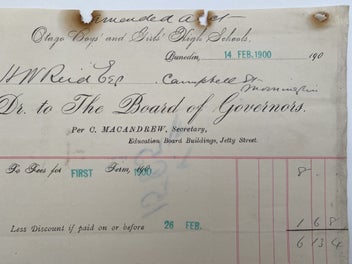 Amended Acct
Otago Boys' and Girls' High Schools,
Dunedin, 14 FEB. 1900 190
H W Reid Esq Campbell St
Mornington
Dr. to The Board of Governors.
Per C. MACANDREW, Secretary,
Education Board Buildings, Jetty Street.
To Fees for FIRST Term, 1900 8
Less Discount if paid on or before 26 FEB. 1 6 8
6 13 4